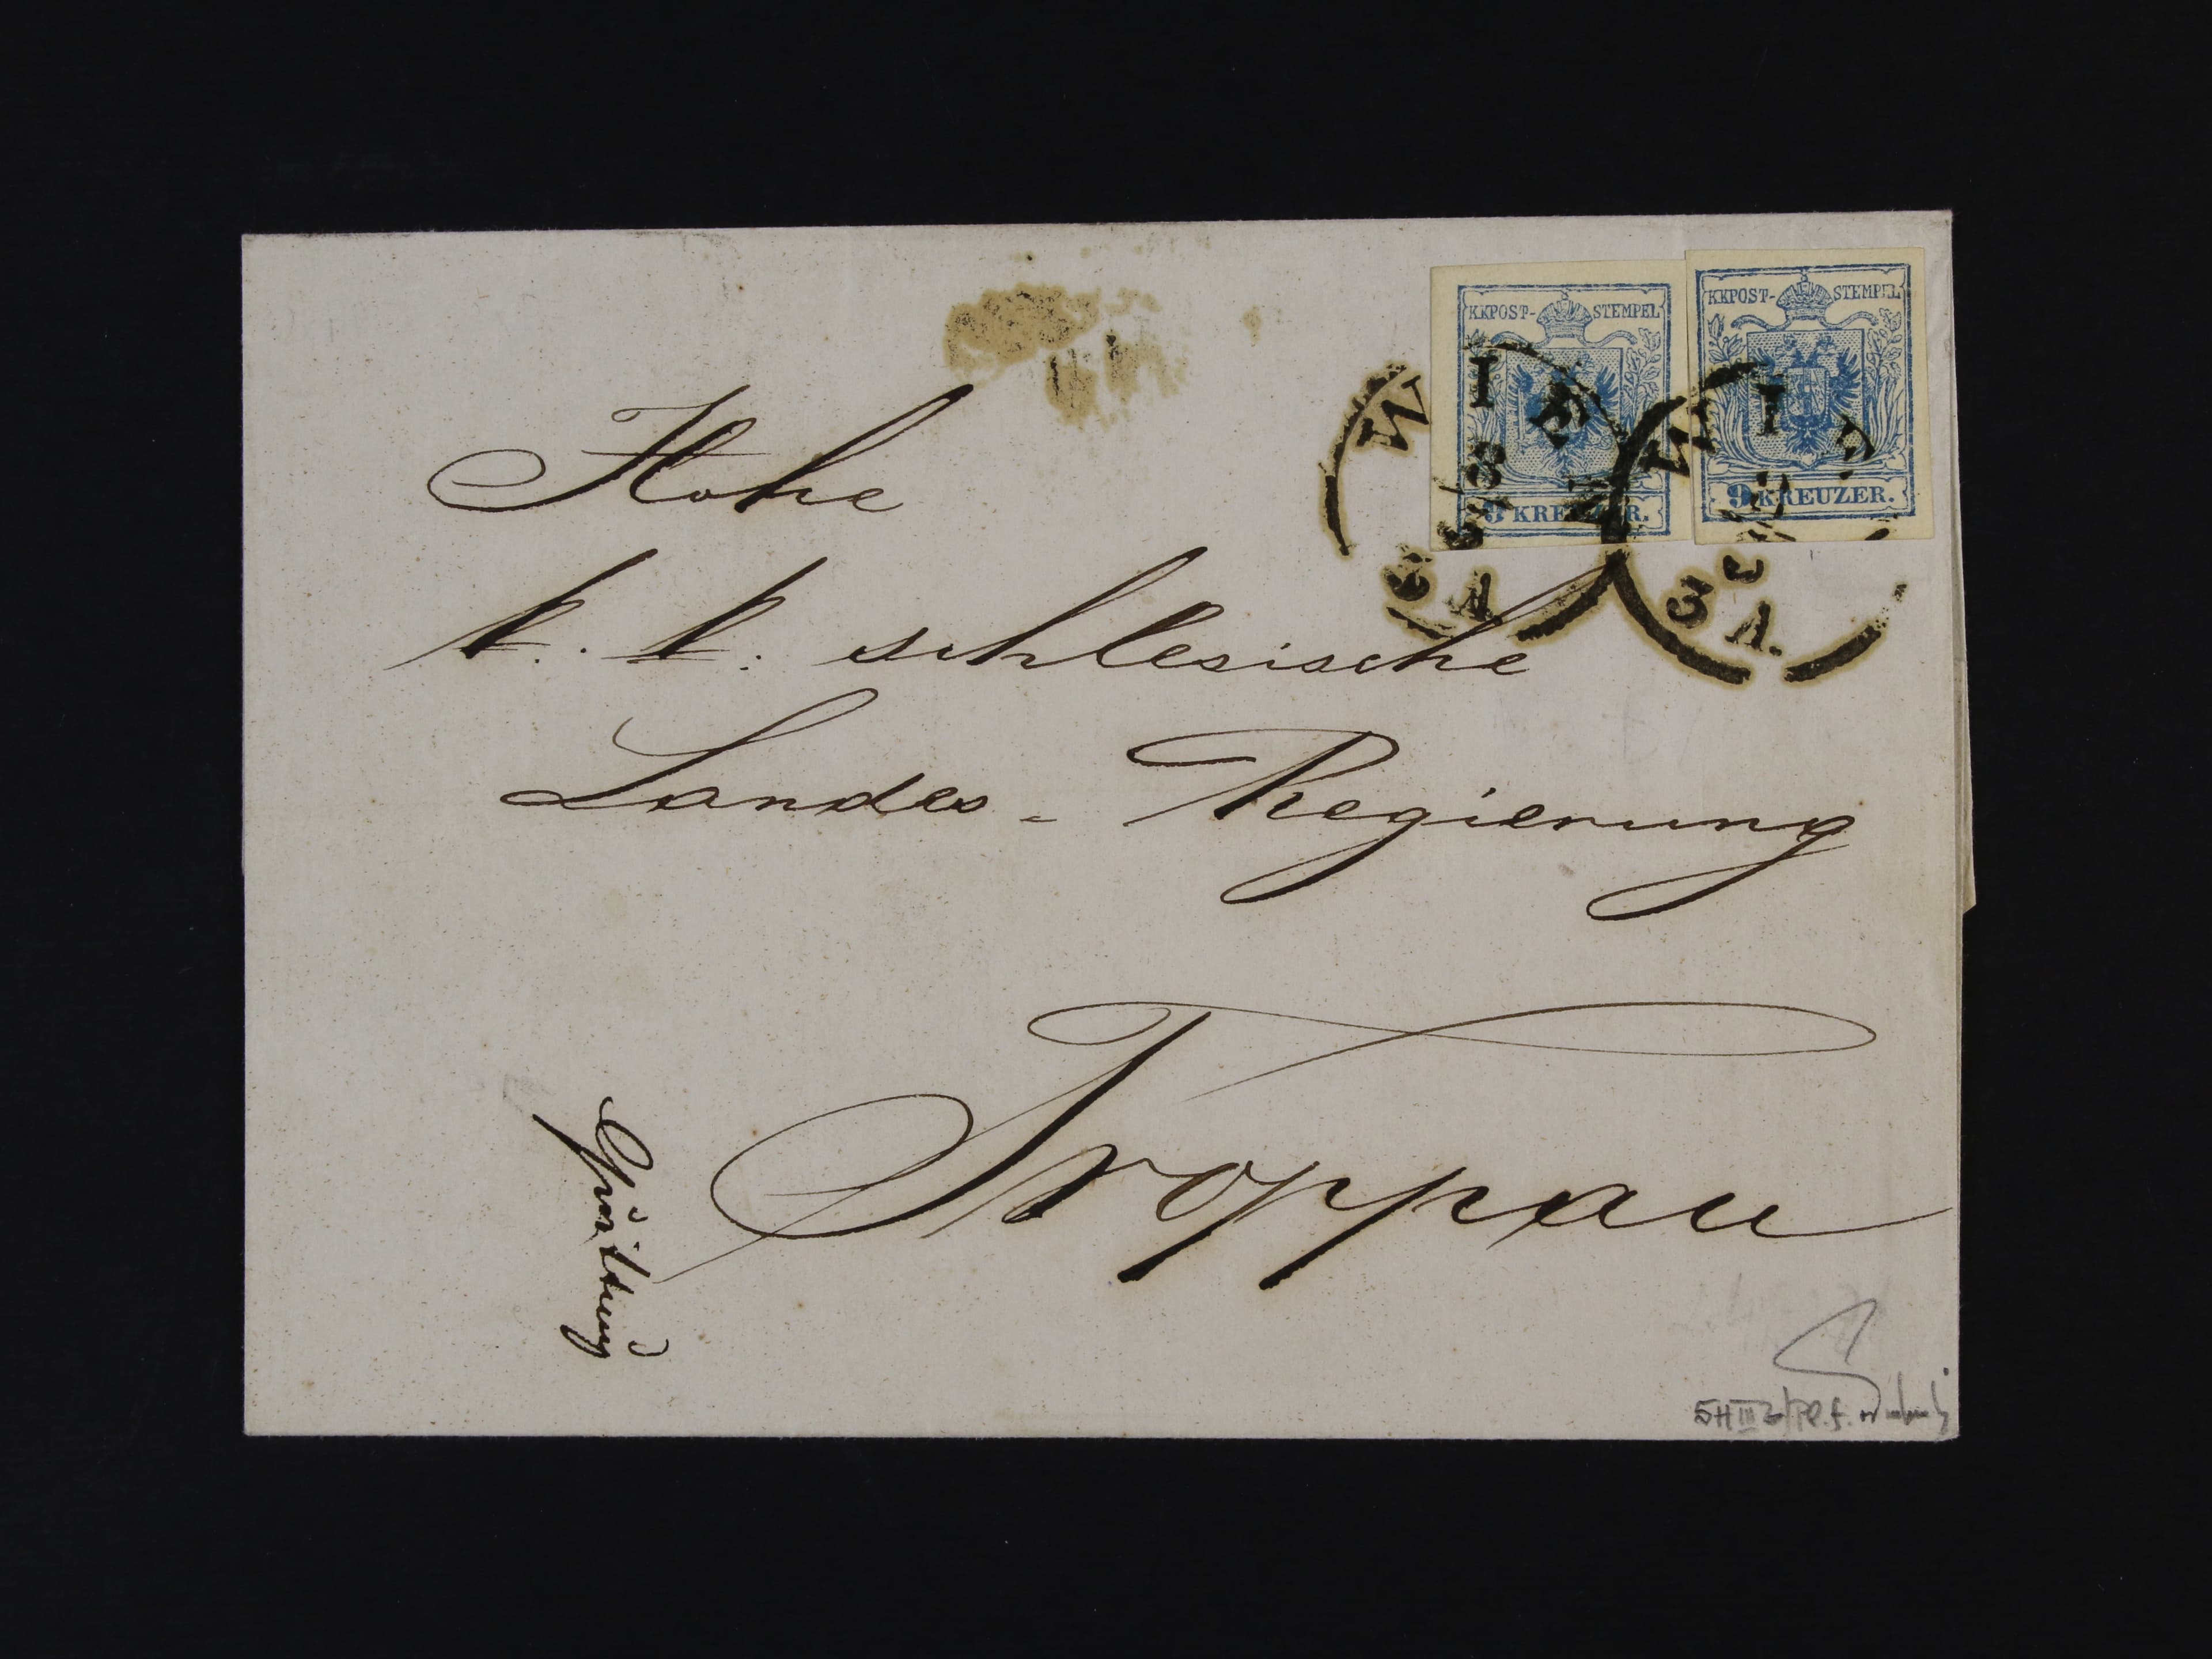 KKPOST-STEMPEL
9 KREUZER.
KKPOST-STEMPEL
9 KREUZER.
WIEN
3 A.
WIE
3 A.
Hohe
k. k. schlesische
Landes-Regierung
Troppau